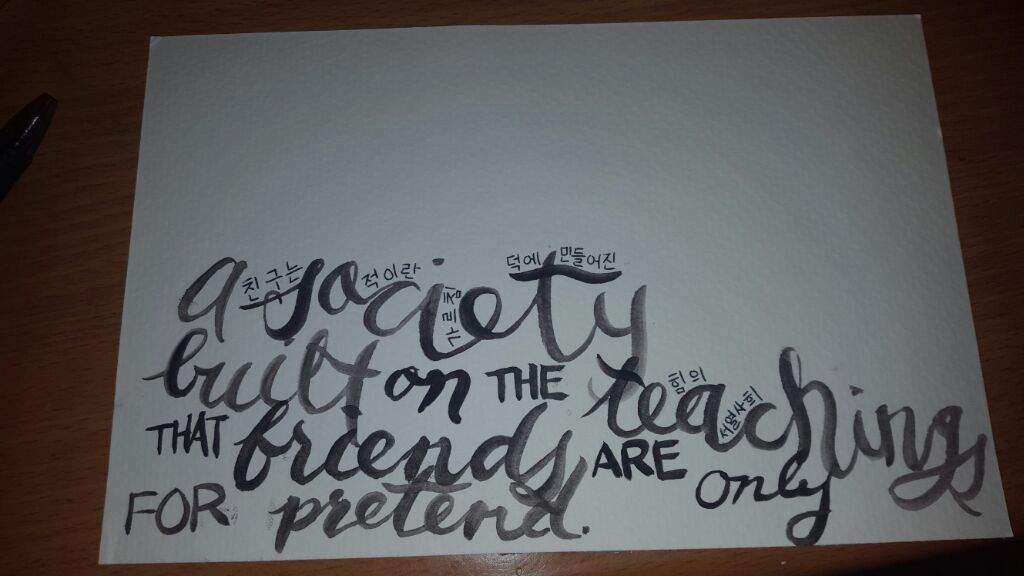 친구는 적이란 가르침 덕에 만들어진
a society
힘의 서열사회
built on THE teachings
THAT friends ARE only
FOR pretend.